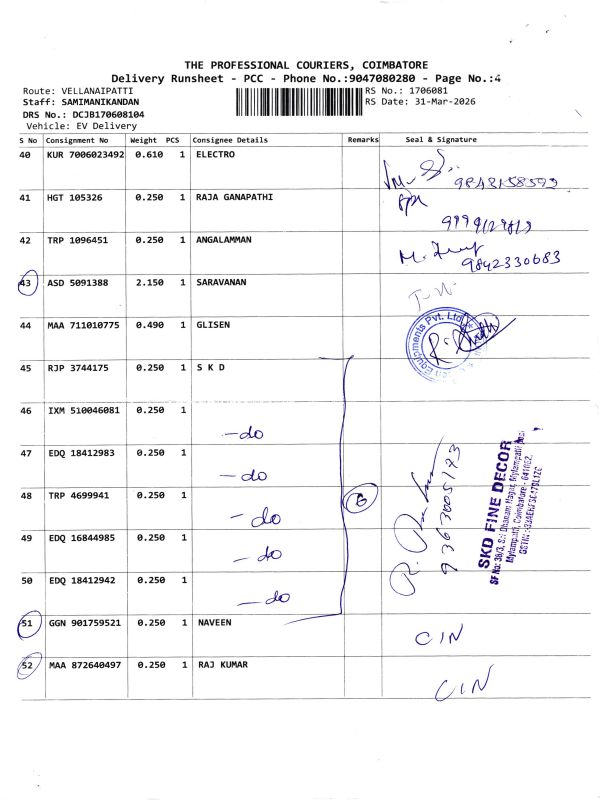 THE PROFESSIONAL COURIERS, COIMBATORE
Delivery Runsheet - PCC - Phone No.:9047080280 - Page No.:4
Route: VELLANAIPATTI
RS No.: 1706081
Staff: SAMIMANIKANDAN
RS Date: 31-Mar-2026
DRS No.: DCJB170608104
Vehicle: EV Delivery
S No Consignment No Weight PCS Consignee Details Remarks Seal & Signature
40 KUR 7006023492 0.610 1 ELECTRO
41 HGT 105326 0.250 1 RAJA GANAPATHI
42 TRP 1096451 0.250 1 ANGALAMMAN
9842330683
43 ASD 5091388 2.150 1 SARAVANAN
44 MAA 711010775 0.490 1 GLISEN
Equipments Pvt. Ltd
45 RJP 3744175 0.250 1 S K D
46 IXM 510046081 0.250 1
- do
47 EDQ 18412983 0.250 1
- do
48 TRP 4699941 0.250 1 - do 6
49 EDQ 16844985 0.250 1 - do
50 EDQ 18412942 0.250 1 - do
9363005193
SKD FINE DECOR
51 GGN 901759521 0.250 1 NAVEEN CIN
52 MAA 872640497 0.250 1 RAJ KUMAR CIN